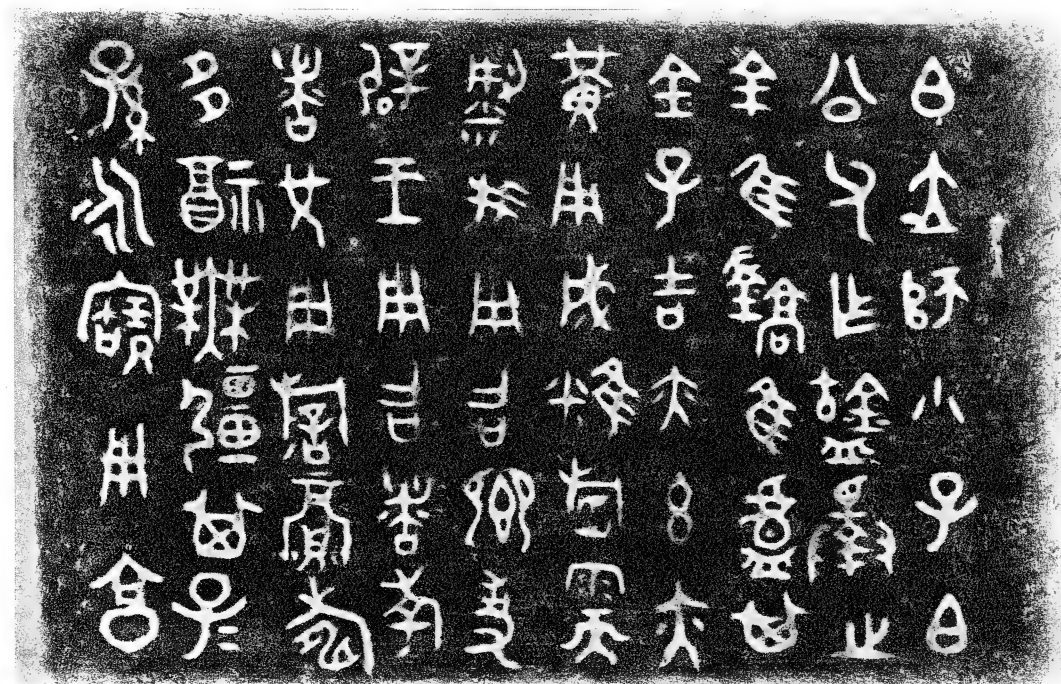 白大師小子白
公父乍𥂴擇之
金隹鐈隹盧其
金孔吉亦玄亦
黃用成糕稻需
梁我用召卿事
辟王用召者考
者兄用旂眉壽
多福無疆其子
孫永寶用享